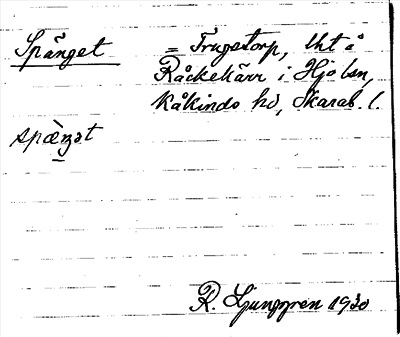 Spånget = Frugstorp, lht å
Råckekärr i Hjo lsn,
Kåkinds hd, Skarab. l.
spæ̀ŋət
R. Ljunggren 1930